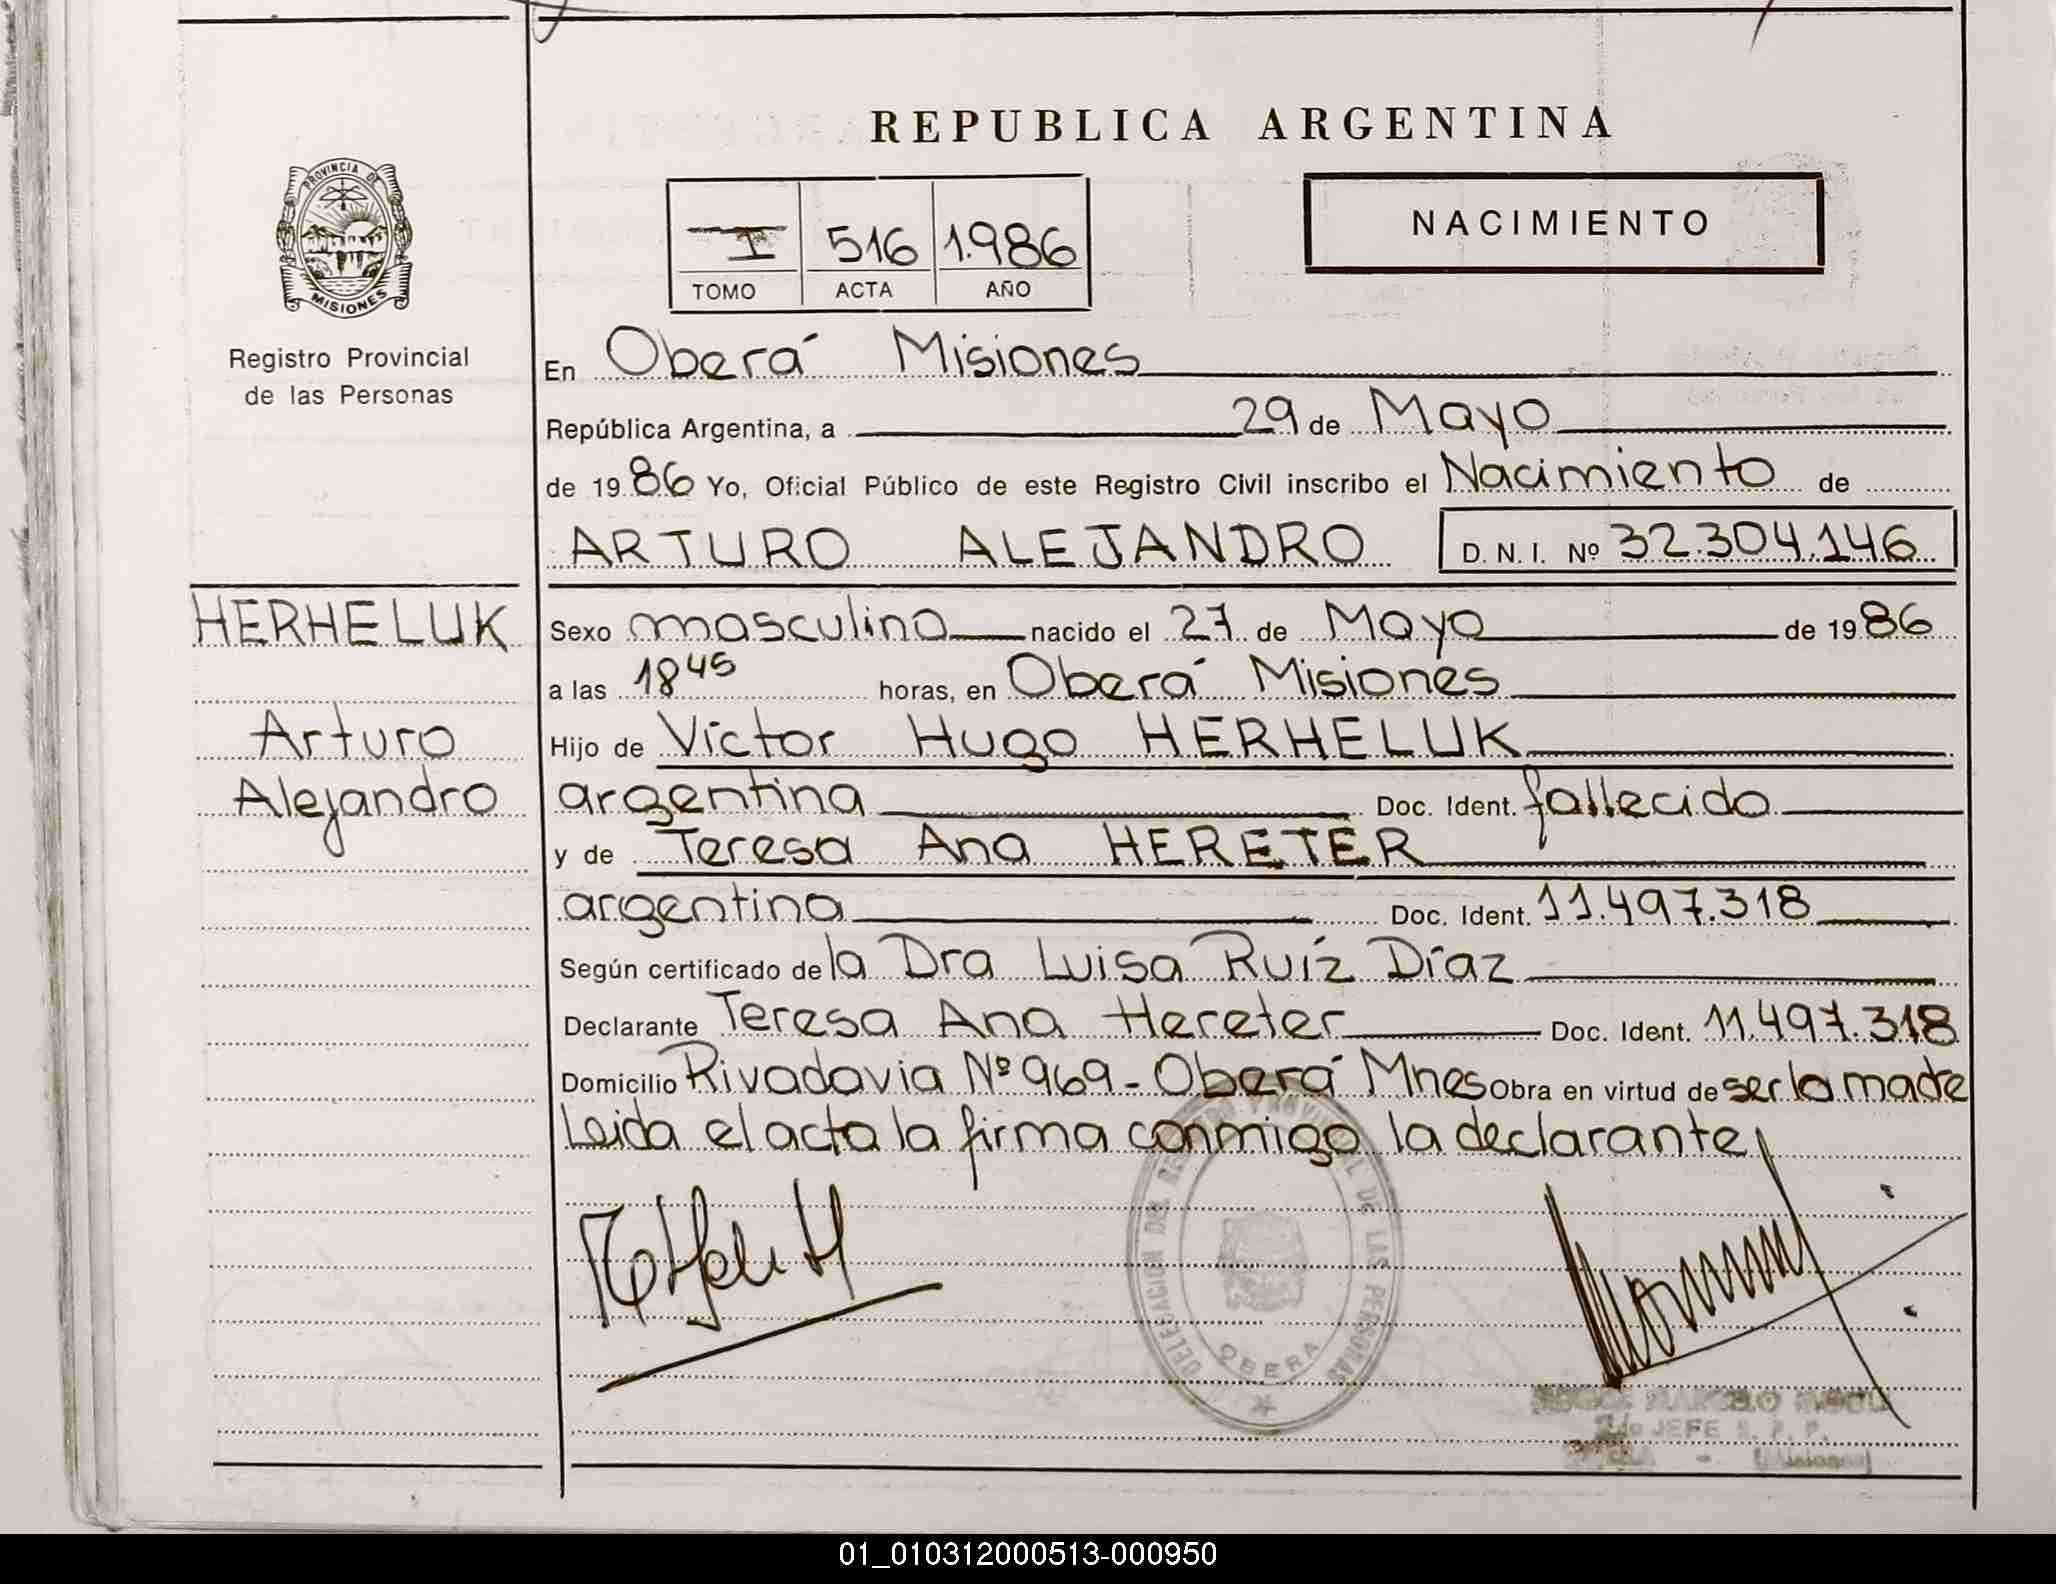 REPUBLICA ARGENTINA
PROVINCIA DE
MISIONES
Registro Provincial
de las Personas
I 516 1.986
TOMO ACTA AÑO
NACIMIENTO
En Oberá Misiones
República Argentina, a 29 de Mayo
de 1986 Yo, Oficial Público de este Registro Civil inscribo el Nacimiento de
ARTURO ALEJANDRO D. N. I. Nº 32.304.146
HERHELUK
Arturo
Alejandro
Sexo masculino nacido el 27 de Mayo de 1986
a las 18 45 horas, en Oberá Misiones
Hijo de Víctor Hugo HERHELUK
argentina Doc. Ident. fallecido
y de Teresa Ana HERETER
argentina Doc. Ident. 11.497.318
Según certificado de la Dra Luisa Ruíz Díaz
Declarante Teresa Ana Hereter Doc. Ident. 11.497.318
Domicilio Rivadavia Nº 969 - Oberá Mnes Obra en virtud de ser la madre
Leida el acta la firma conmigo la declarante
DELEGACION DEL REGISTRO PROVINCIAL DE LAS PERSONAS
OBERA
JEFE R. P. P.
01_010312000513-000950